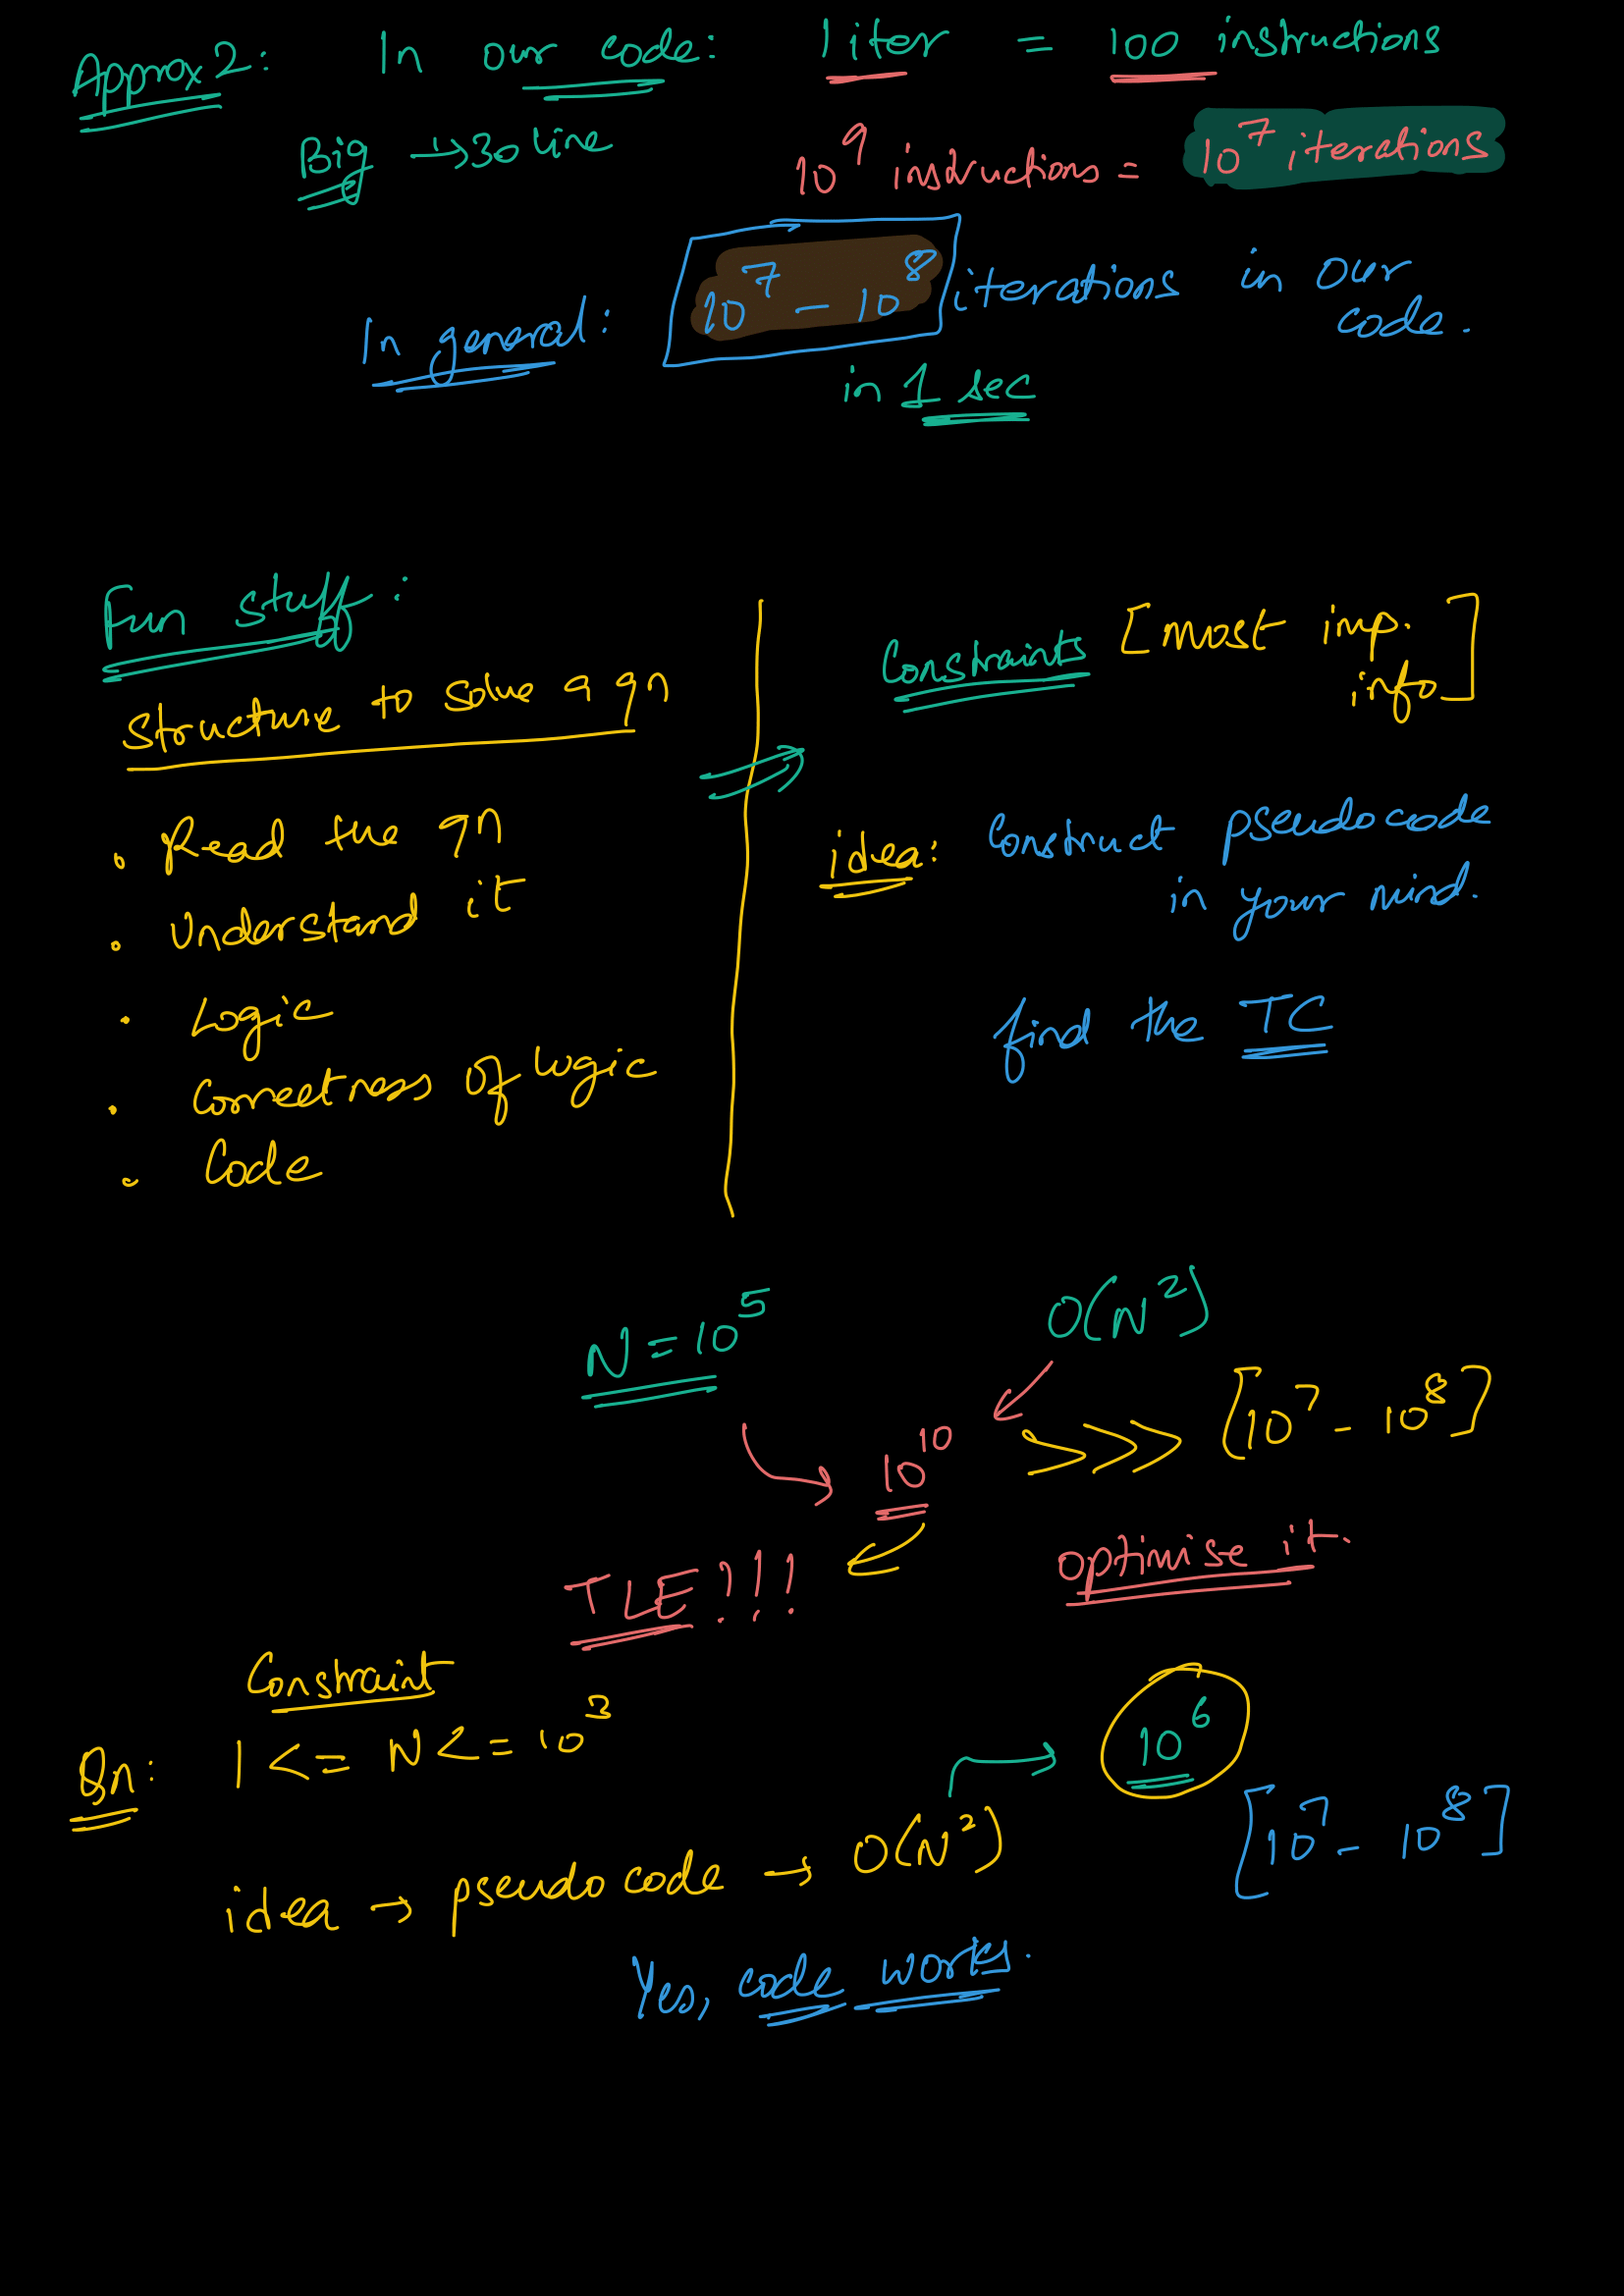 Approx 2: In our code: 1 iter = 100 instructions
Big → 30 line
10^9 instructions = 10^7 iterations
In general: 10^7 - 10^8 iterations in our code.
in 1 sec
Fun stuff:
Structure to solve a qn
• Read the qn
• Understand it
• Logic
• Correctness of logic
• Code
Constraints [most imp. info]
idea: Construct pseudocode
in your mind.
find the TC
N = 10^5 O(N^2)
10^10 >>> [10^7 - 10^8]
TLE!!! optimise it.
Constraint
Qn: 1 <= N <= 10^3
10^6
[10^7 - 10^8]
idea → pseudo code → O(N^2)
Yes, code works.